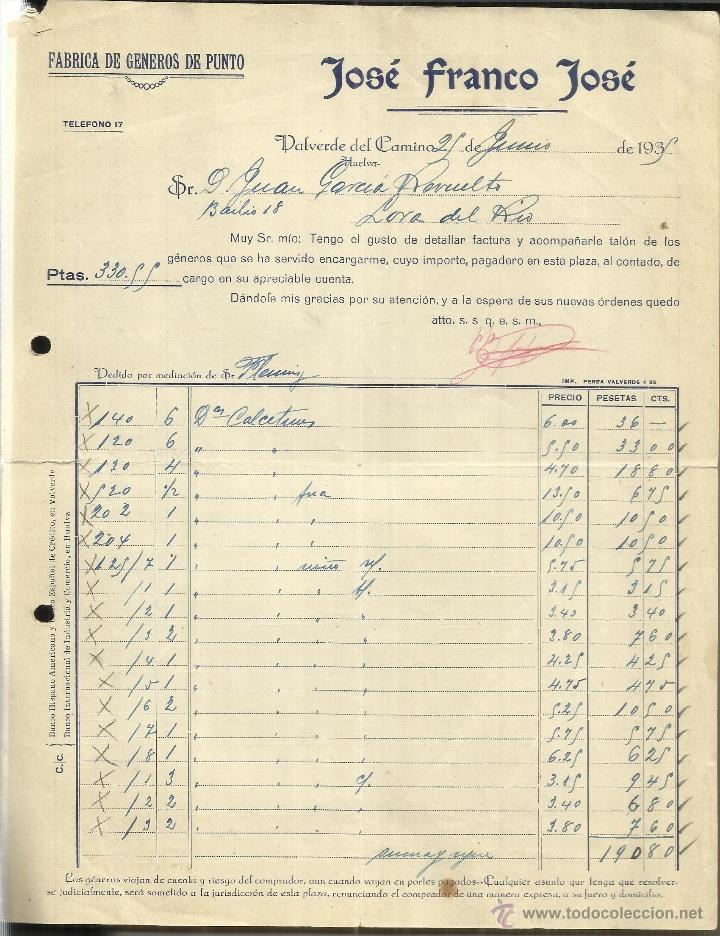 FABRICA DE GENEROS DE PUNTO
José Franco José
TELEFONO 17
Valverde del Camino 25 de Junio de 1935
Huelva
Sr. D. Juan García Revuelto
Bailio 18 Lora del Rio
Muy Sr. mío: Tengo el gusto de detallar factura y acompañarle talón de los
géneros que se ha servido encargarme, cuyo importe, pagadero en esta plaza, al contado, de
Ptas. 330.55 cargo en su apreciable cuenta.
Dándole mis gracias por su atención, y a la espera de sus nuevas órdenes quedo
atto. s. s q. e. s. m.,
Pedido por mediación de Sr.
IMP. PEREA VALVERDE 4 35
PRECIO PESETAS CTS.
140 6 Das Calcetines 6.00 36 —
120 6 " " 5.50 33 00
130 4 " " 4.70 18 80
520 1/2 " " fna 13.50 6 75
202 1 " " " 10.50 10 50
204 1 " " " 10.50 10 50
125/7 1 " niño 5.75 5 75
/1 1 " " " 3.15 3 15
/2 1 " " " " 3.40 3 40
/3 2 " " " " 3.80 7 60
/4 1 " " " " 4.25 4 25
/5 1 " " " " 4.75 4 75
/6 2 " " " " 5.25 10 50
/7 1 " " " " 5.75 5 75
/8 1 " " " " 6.25 6 25
/1 3 " " " c/. 3.15 9 45
/2 2 " " " " 3.40 6 80
/3 2 " " " " 3.80 7 60
suma y sigue 190 80
C/C. Banco Hispano Americano y Banco Español de Crédito, en Valverde
Banco Internacional de Industria y Comercio, en Huelva
Los géneros viajan de cuenta y riesgo del comprador, aun cuando vayan en portes pagados--Cualquier asunto que tenga que resolver-
se judicialmente, será sometido a la jurisdicción de esta plaza, renunciando el comprador de una manera expresa, a su fuero y domicilio.
www.todocoleccion.net